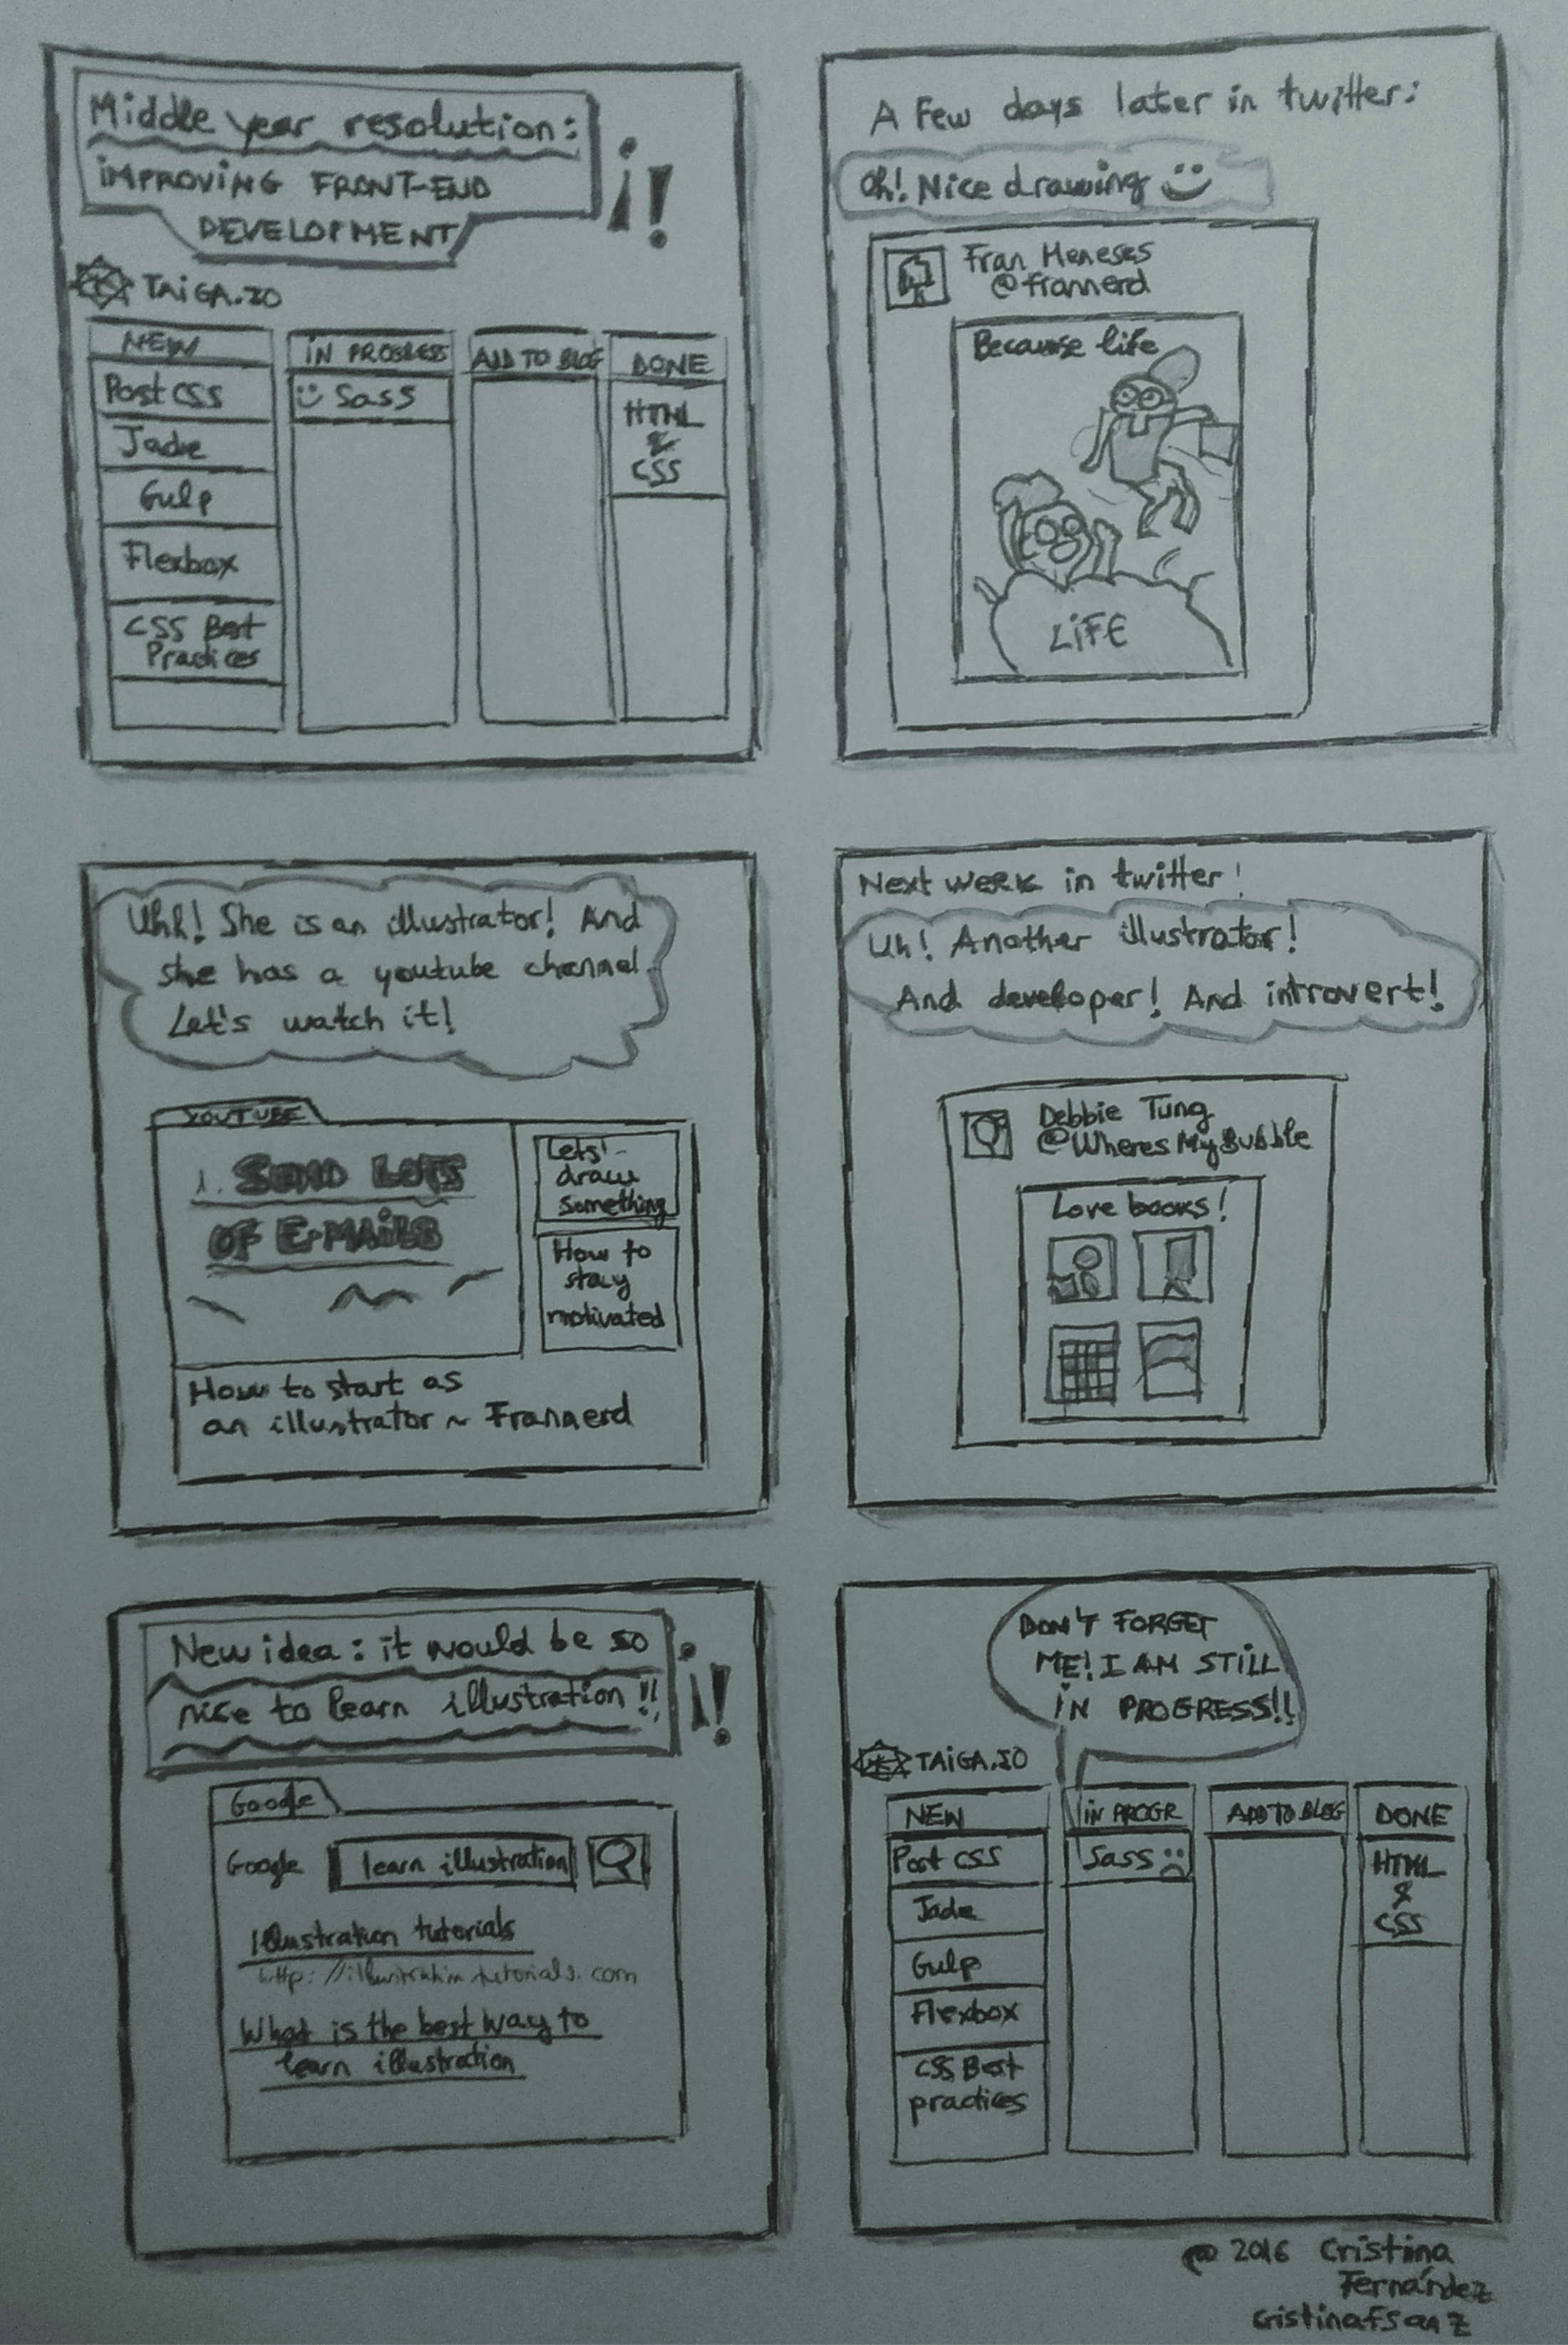 Middle year resolution:
IMPROVING FRONT-END
DEVELOPMENT
¡!
TAIGA.IO
NEW
IN PROGRESS
ADD TO BLOG
DONE
Post CSS
Jade
Gulp
Flexbox
CSS Best
Practices
Sass
HTML
&
CSS
A Few days later in twitter:
Oh! Nice drawing
Fran Meneses
@frannerd
Because life
LIFE
Uhh! She is an illustrator! And
she has a youtube channel.
Let's watch it!
YOUTUBE
1. SEND LOTS
OF E-MAILS
Lets'
draw
something
How to
stay
motivated
How to start as
an illustrator ~ Frannerd
Next week in twitter!
Uh! Another illustrator!
And developer! And introvert!
Debbie Tung
@WheresMyBubble
Love books!
New idea: it would be so
nice to learn illustration!!
¡!
Google
Google
learn illustration
Illustration tutorials
http://illustration.tutorials.com
What is the best way to
learn illustration
DON'T FORGET
ME! I AM STILL
IN PROGRESS!!
TAIGA.IO
NEW
IN PROGR
ADD TO BLOG
DONE
Post CSS
Jade
Gulp
Flexbox
CSS Best
practices
Sass
HTML
&
CSS
@ 2016 Cristina
Fernández
cristinafsanz